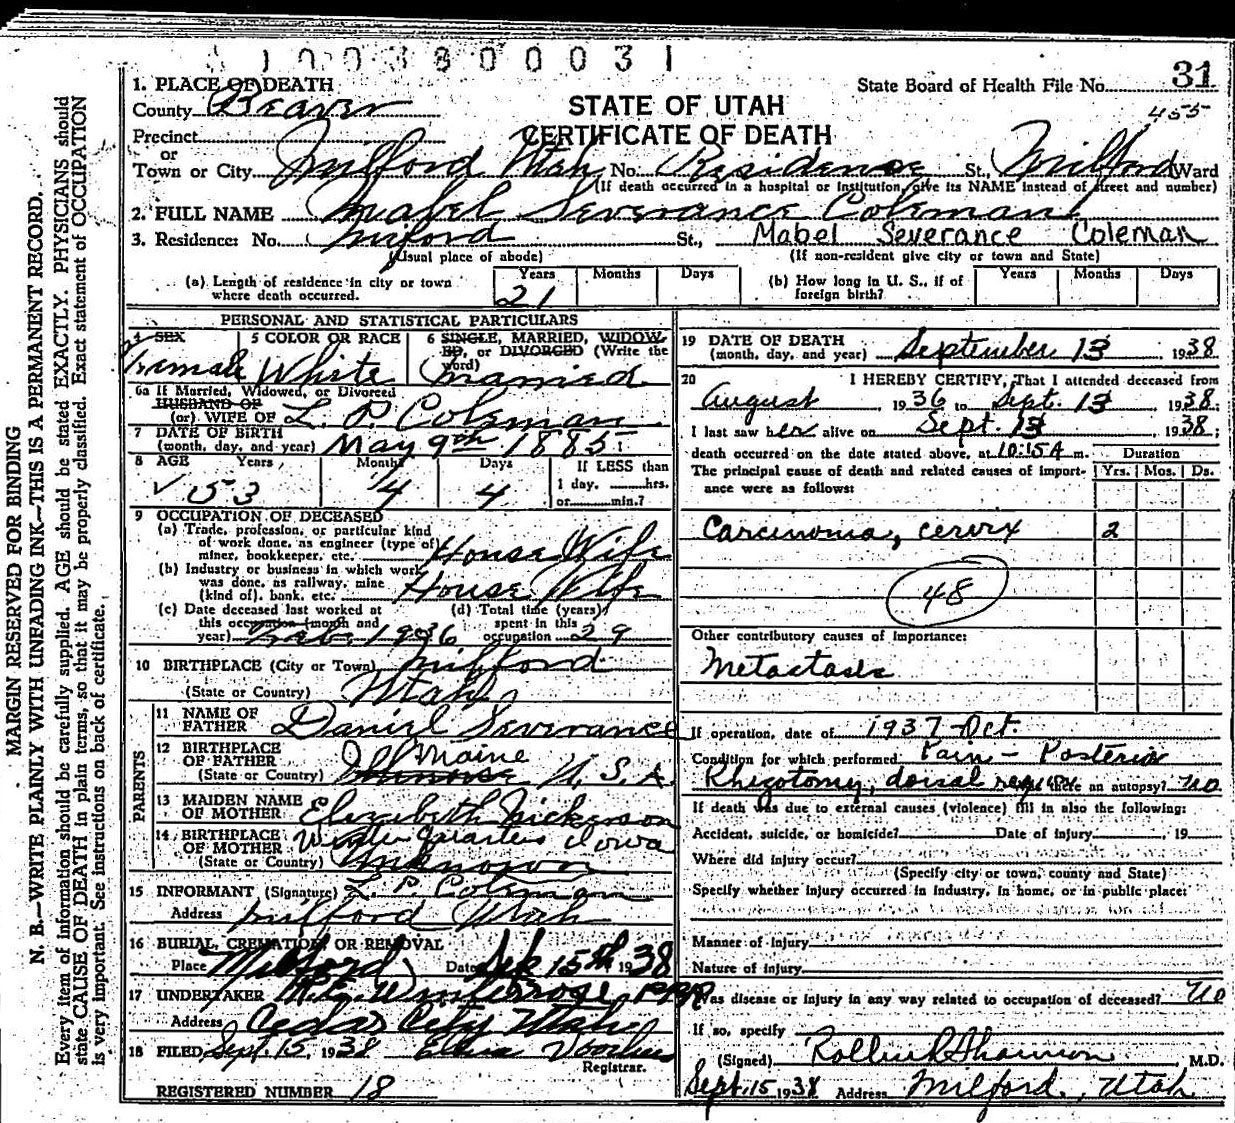 1003800031
1. PLACE OF DEATH
County Beaver
State Board of Health File No. 31
455
STATE OF UTAH
CERTIFICATE OF DEATH
Precinct
or
Town or City Milford Utah No. Residence St., Milford Ward
(If death occurred in a hospital or institution, give its NAME instead of street and number)
2. FULL NAME Mabel Severance Coleman
3. Residence: No. Milford St., Mabel Severance Coleman
(Usual place of abode) (If non-resident give city or town and State)
(a) Length of residence in city or town where death occurred. Years 21 Months Days
(b) How long in U. S., if of foreign birth? Years Months Days
PERSONAL AND STATISTICAL PARTICULARS
4 SEX 5 COLOR OR RACE 6 SINGLE, MARRIED, WIDOWED, or DIVORCED (Write the word)
Female White Married
6a If Married, Widowed, or Divorced
HUSBAND OF
(or) WIFE OF L. P. Coleman
7 DATE OF BIRTH
(month, day, and year) May 9th 1885
8 AGE Years Months Days If LESS than
53 4 4 1 day, hrs.
or min.?
9 OCCUPATION OF DECEASED
(a) Trade, profession, or particular kind
of work done, as engineer (type of)
miner, bookkeeper, etc. House Wife
(b) Industry or business in which work
was done, as railway, mine
(kind of), bank, etc. House Wife
(c) Date deceased last worked at
this occupation (month and
year) 1936
(d) Total time (years)
spent in this
occupation 29
10 BIRTHPLACE (City or Town) Milford
(State or Country) Utah
PARENTS
11 NAME OF
FATHER Daniel Severance
12 BIRTHPLACE
OF FATHER Maine
(State or Country) U. S. A.
13 MAIDEN NAME
OF MOTHER Elizabeth Nickerson
14 BIRTHPLACE
OF MOTHER Winter Quarters Iowa
(State or Country) Unknown
15 INFORMANT (Signature) L. P. Coleman
Address Milford Utah
16 BURIAL, CREMATION OR REMOVAL
Place Milford Date Sep 15th 1938
17 UNDERTAKER
Address Cedar City Utah
18 FILED Sept. 15, 1938 Voorhees
Registrar.
REGISTERED NUMBER 18
19 DATE OF DEATH
(month, day, and year) September 13 1938
20 I HEREBY CERTIFY, That I attended deceased from
August, 1936 to Sept. 13 1938;
I last saw her alive on Sept. 13 1938;
death occurred on the date stated above, at 10:15 A m.
Duration
The principal cause of death and related causes of importance were as follows: Yrs. Mos. Ds.
Carcinoma, cervix 2
48
Other contributory causes of importance:
Metastasis
If operation, date of 1937-Oct.
Condition for which performed Pain - Posterior
Rhizotomy, dorsal region Was there an autopsy? no
If death was due to external causes (violence) fill in also the following:
Accident, suicide, or homicide? Date of injury, 19
Where did injury occur?
(Specify city or town, county and State)
Specify whether injury occurred in industry, in home, or in public place:
Manner of Injury
Nature of Injury
Was disease or injury in any way related to occupation of deceased? no
If so, specify
(Signed) Shannon M.D.
Sept. 15 1938 Address Milford, Utah
MARGIN RESERVED FOR BINDING
N. B.—WRITE PLAINLY WITH UNFADING INK—THIS IS A PERMANENT RECORD.
Every item of information should be carefully supplied. AGE should be stated EXACTLY. PHYSICIANS should
state CAUSE OF DEATH in plain terms, so that it may be properly classified. Exact statement of OCCUPATION
is very important. See instructions on back of certificate.